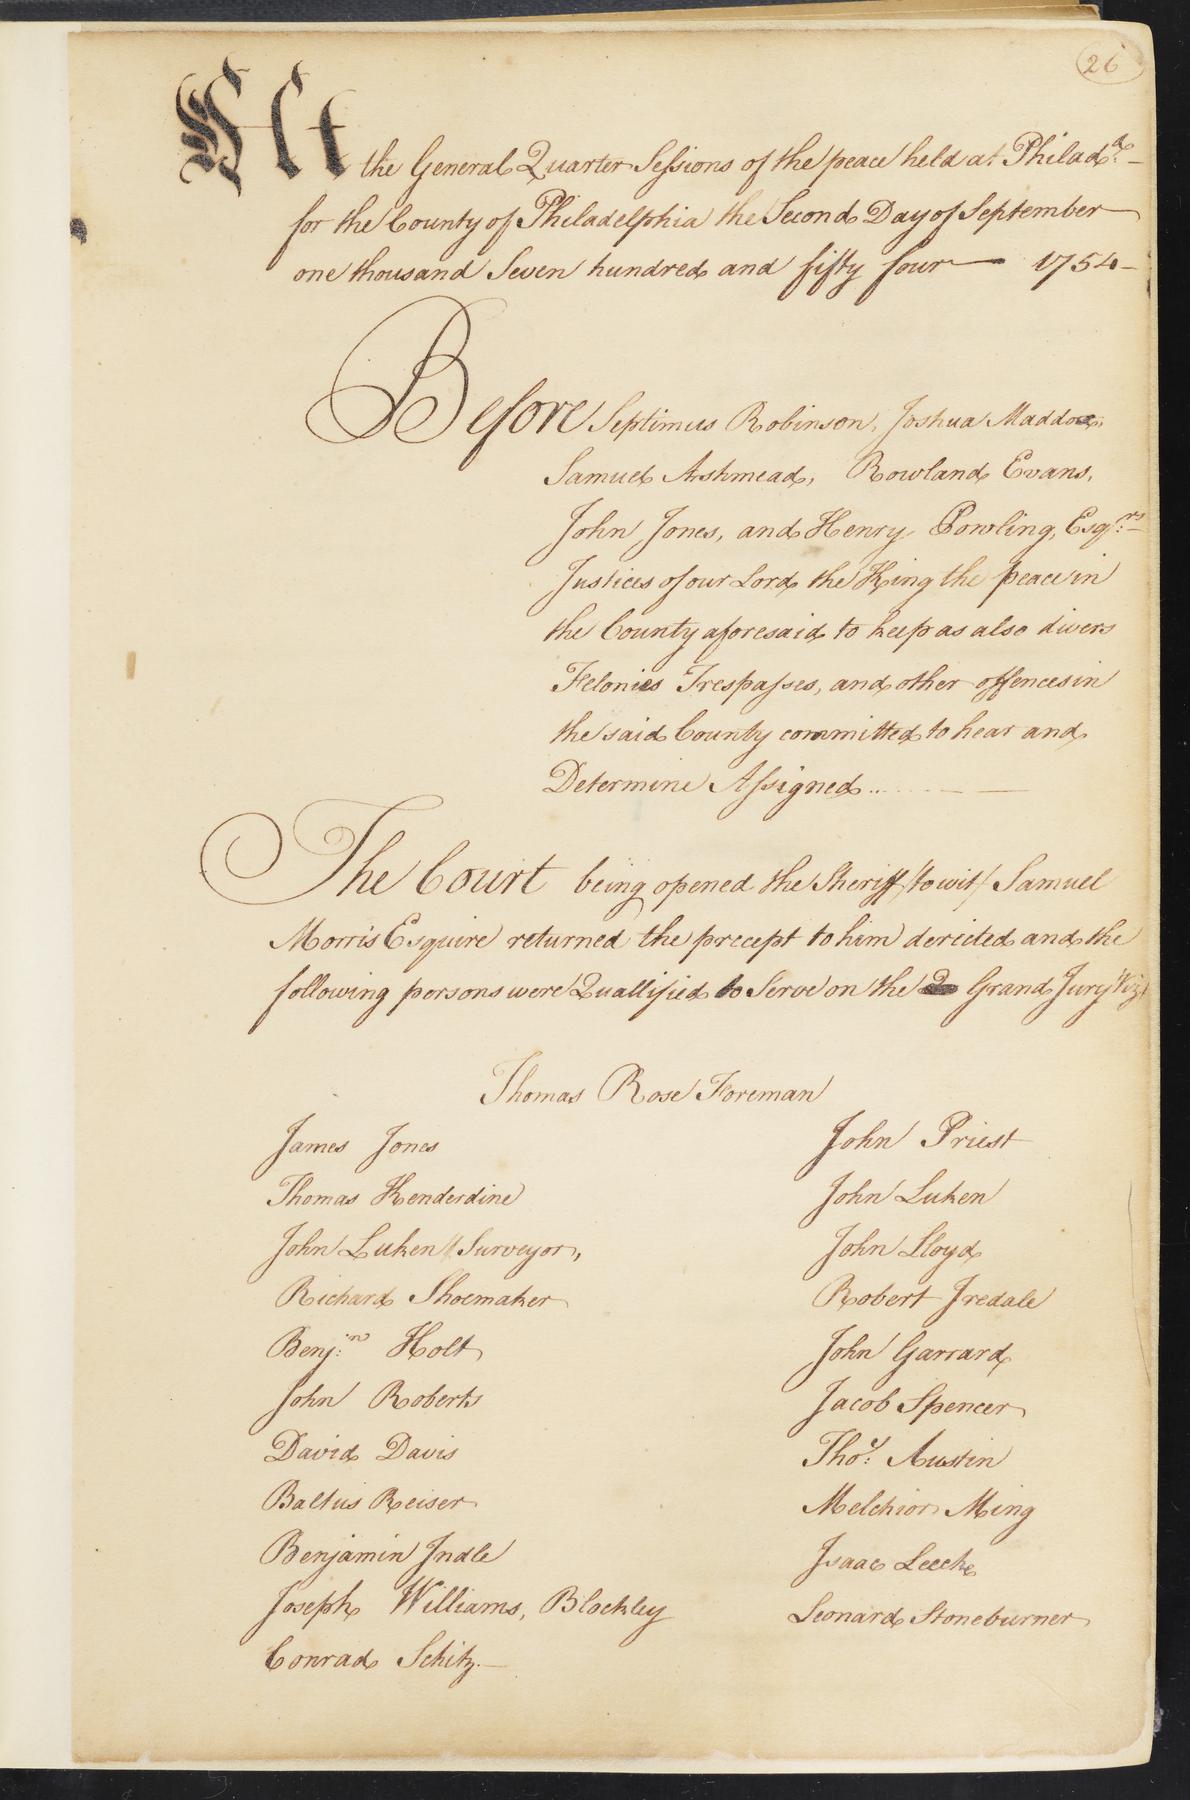 26
At the General Quarter Sessions of the peace held at Philad.a
for the County of Philadelphia the Second Day of September
one thousand Seven hundred and fifty four — 1754 –
Before Septimus Robinson, Joshua Maddox,
Samuel Ashmead, Rowland Evans,
John Jones, and Henry Powling, Esq:rs
Justices of our Lord the King the peace in
the County aforesaid to keep as also divers
Felonies Trespasses, and other offences in
the said County committed to hear and
Determine Assigned..
The Court being opened the Sheriff /to wit/ Samuel
Morris Esquire returned the precept to him dericted and the
following persons were Quallified to Serve on the Grand Jury Viz.t
Thomas Rose Foreman
James Jones
Thomas Henderdine
John Luken // Surveyor,
Richard Shoemaker
Benj:n Holt
John Roberts
David Davis
Baltus Reiser
Benjamin Indle
Joseph Williams, Blockley
Conrad Schitz.
John Priest
John Luken
John Lloyd
Robert Iredale
John Garrard
Jacob Spencer
Tho:s Austin
Melchior Ming
Isaac Leech
Leonard Stoneburner